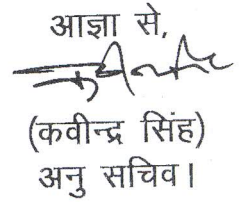 आज्ञा से,
(कवीन्द्र सिंह)
अनु सचिव।